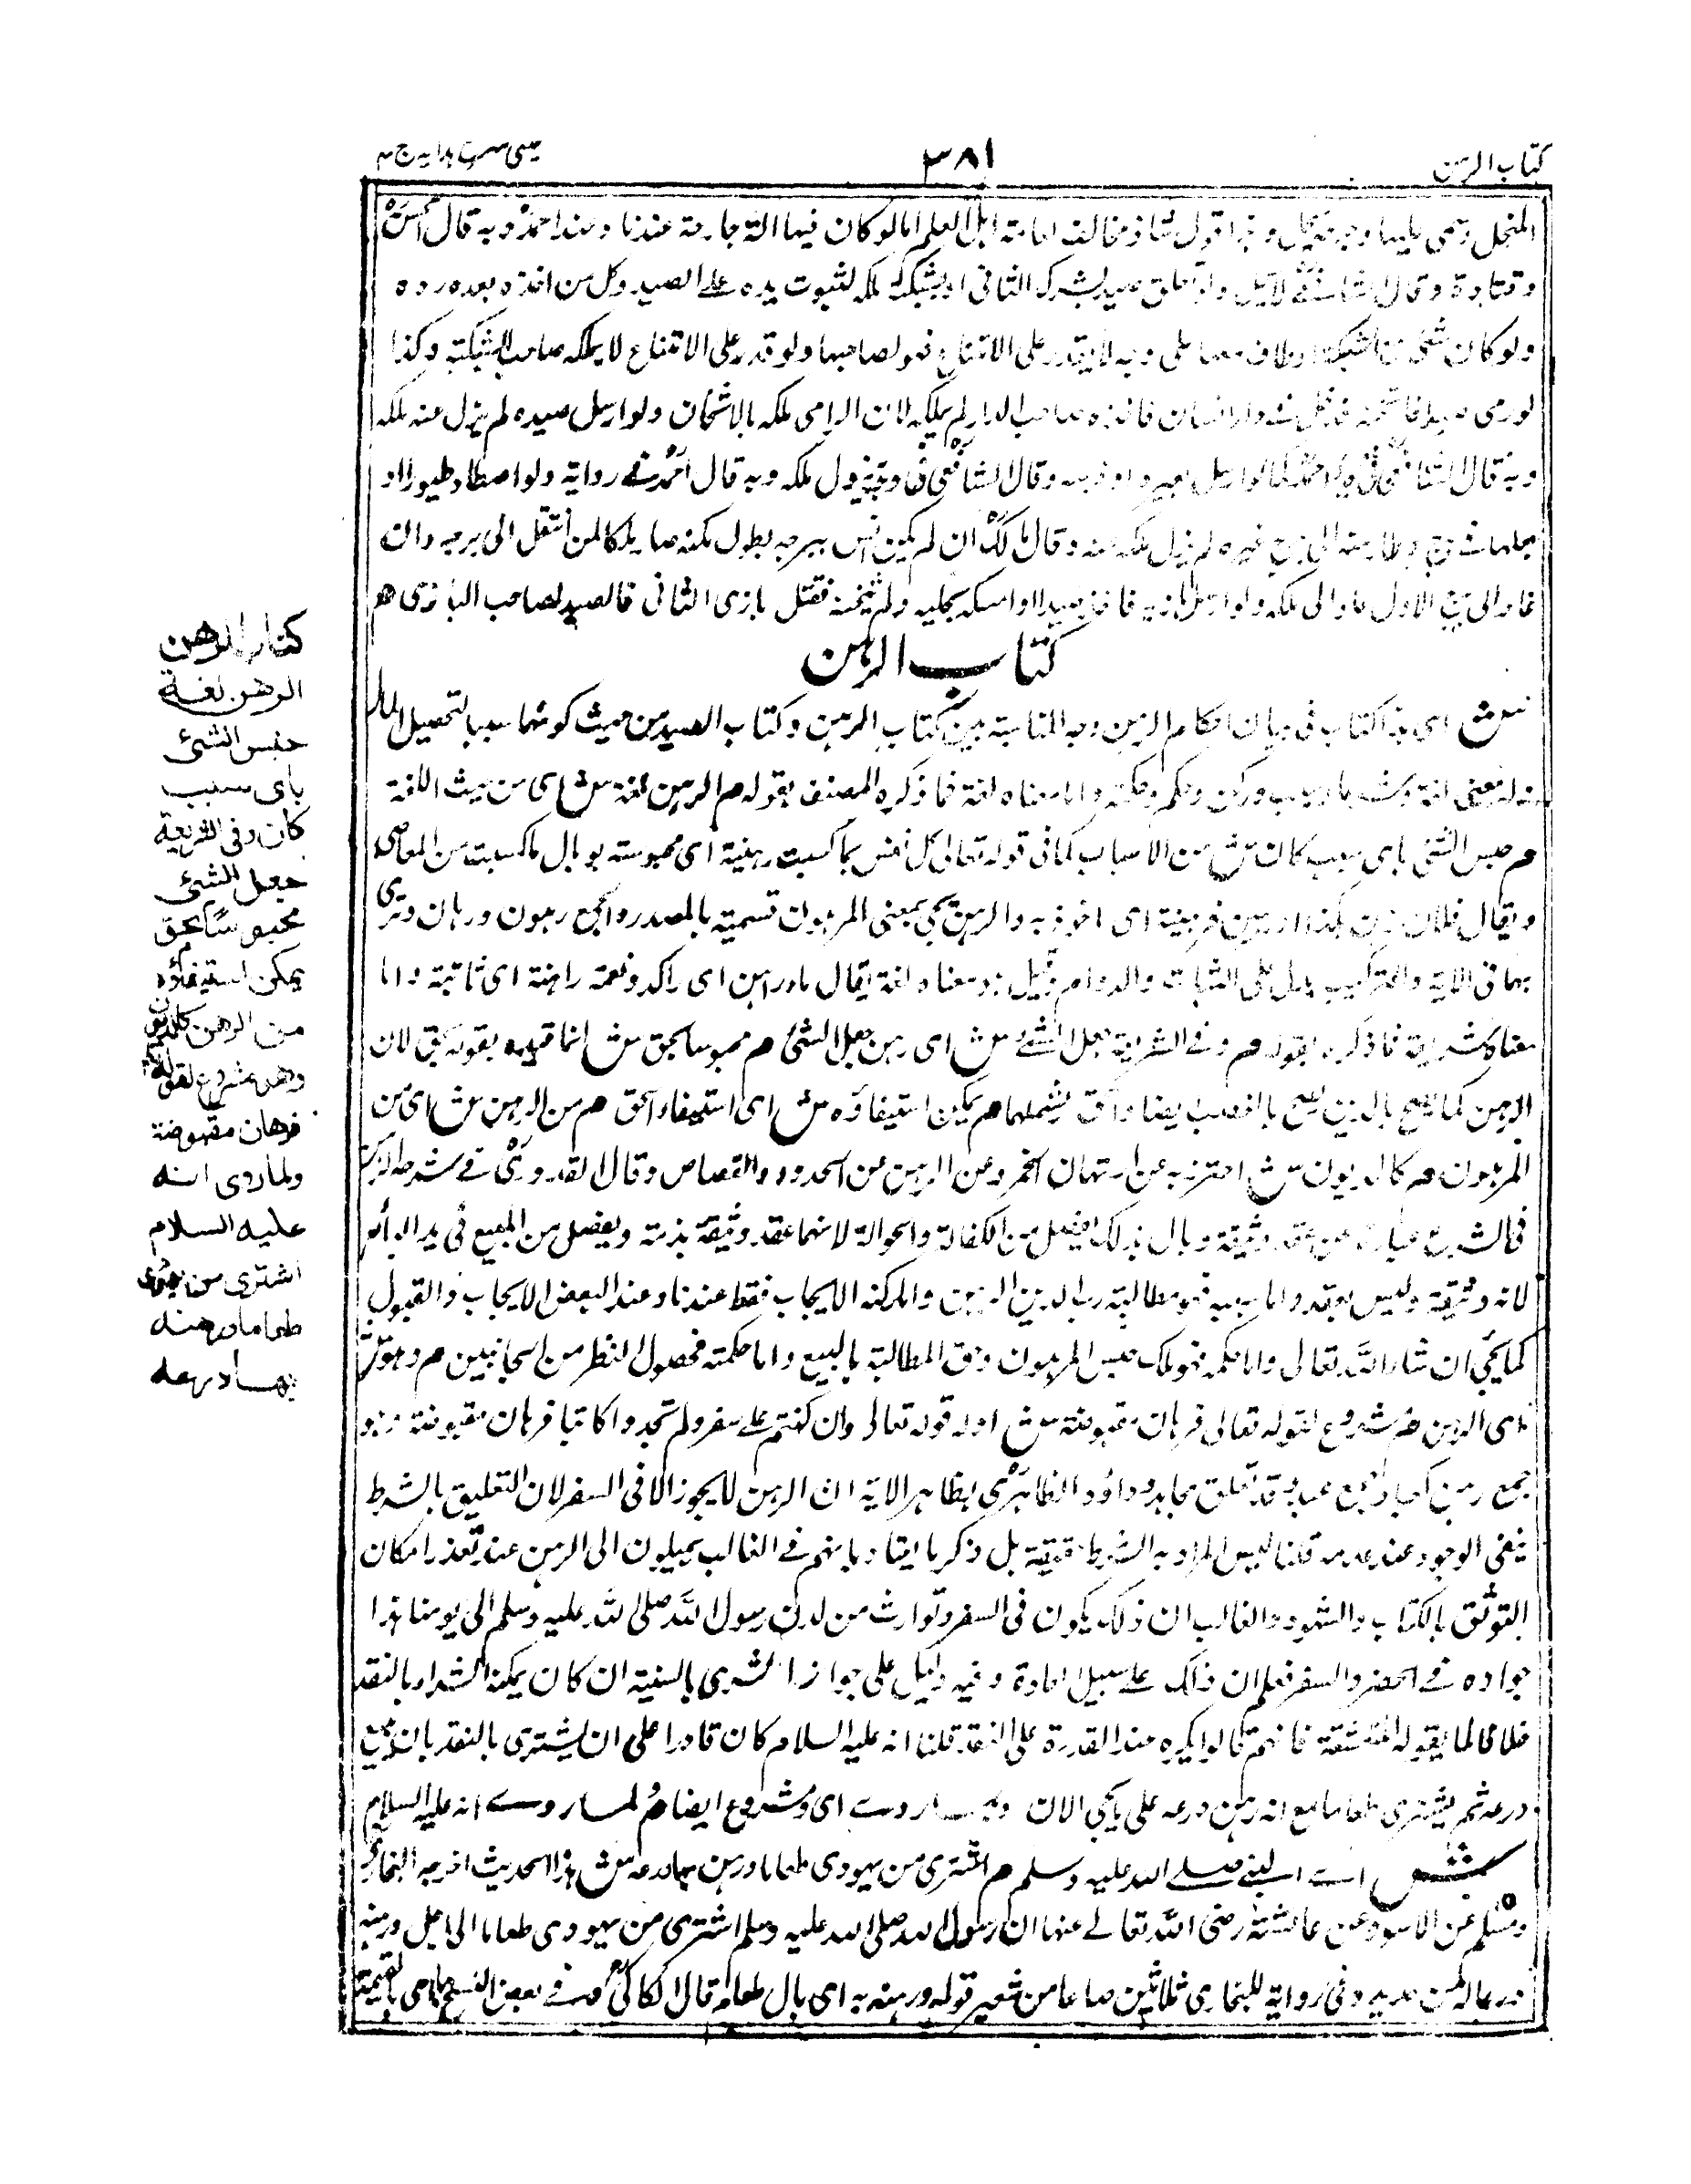 كتاب الرهن
٣٨١
عينى شرح هدايه ج ٤
المنجل وسمى عليها وجرحه يحل وهذا قول شاذ مخالف لعامة اهل العلم اما لو كان فيها آلة جارحة عندنا وعند احمد وبه قال الحسن
وقتادة وقال الشافعى لا يحل ولو تعلق صيد بشرك الثانى او بشبكته ملكه لثبوت يده على الصيد وكل من اخذه بعده رده
ولو كان شئ من الشبكة وطاف معها على وجه لا يقدر على الامتناع فهو لصاحبها ولو قدر على الامتناع لا يملكه صاحب الشبكة وكذا
لو رمى صيدا فاثخنه فدخل دار انسان فاخذه صاحب الدار لم يملكه لان الرامى ملكه بالاثخان ولو ارسل صيده لم يزل عنه ملكه
وبه قال الشافعى واحمد كما لو ارسل بعيره او فرسه وقال الشافعى فى وجه يزول ملكه وبه قال احمد فى رواية ولو اصطاد طيورا او
غيره لم يزل ملكه عنه وقال مالك ان لم يكن انس ببرجه بطول مكثه صار ملكا لمن انتقل الى برجه وان
عاد الى برج الاول عاد الى ملكه ولو ارسل بازيه فاخذ صيدا او امسكه بمخلبه ولم يثخنه فقتل بازى الثانى فالصيد لصاحب البازى هم
كتاب الرهن
ش اى هذا كتاب فى بيان احكام الرهن وجه المناسبة بين كتاب الرهن وكتاب الصيد من حيث كونهما سببا لتحصيل المال
وله معنى لغة وشرعا وسبب وركن وحكم وحكمة واما معناه لغة فما ذكره المصنف بقوله م الرهن لغة ش اى من حيث اللغة
م حبس الشئ باى سبب كان ش من الاسباب كما فى قوله تعالى كل نفس بما كسبت رهينة اى محبوسة بوبال ما كسبت من المعاصى
ويقال فلان رهن بكذا او رهين ورهينة اى ماخوذ به والرهن يجئ بمعنى المرهون تسمية بالمصدر والجمع رهون ورهان وقرئ
بها فى الاية والتركيب يدل على الثبات والدوام وقيل هو معناه لغة يقال ماء راهن اى راكد ونعمة راهنة اى ثابتة واما
معناه شريعة فما ذكره بقوله م وفى الشريعة جعل الشئ ش اى رهن جعل الشئ م محبوسا بحق ش انما قيده بقوله بحق لان
الرهن كما يصح بالدين يصح بالغصب ايضا والحق يشملهما م يمكن استيفاؤه ش اى استيفاء الحق م من الرهن ش اى من
المرهون م كالديون ش احترز به عن ارتهان الخمر وعن الرهن عن الحدود والقصاص وقال القدورى فى شرحه الرهن
فى الشرع عبارة عن عقد وثيقة وبال بذلك ينفصل من الكفالة والحوالة لانهما عقد وثيقة بذمة ويفصل من المبيع فى يد البائع
لانه وثيقة وليس بعقد واما سببه فهو مطالبة رب الدين الرهن واما ركنه الايجاب فقط عندنا وعند البعض الايجاب والقبول
كما يجئ ان شاء الله تعالى واما حكمه فهو ملك حبس المرهون وحق المطالبة بالبيع واما حكمته فحصول النظر من الجانبين م وهو ش
اى الرهن م مشروع لقوله تعالى فرهان مقبوضة ش اوله قوله تعالى وان كنتم على سفر ولم تجدوا كاتبا فرهان مقبوضة وهو
جمع رهن كعباد جمع عبد وقد تعلق مجاهد وداؤد الظاهرى بظاهر الاية ان الرهن لا يجوز الا فى السفر لان التعليق بالشرط
ينفى الوجود عند عدمه قلنا ليس المراد به الشرط حقيقة بل ذكر ما يعتاد بانهم فى الغالب يميلون الى الرهن عند تعذر امكان
التوثق بالكتاب والشهود والغالب ان ذلك يكون فى السفر وتوارث من لدن رسول الله صلى الله عليه وسلم الى يومنا هذا
جوازه فى الحضر والسفر فعلم ان ذلك على سبيل العادة وفيه دليل على جواز الشرى بالنسية ان كان يمكنه الشراء بالنقد
خلافا لما يقوله المتقشفة فانهم قالوا يكره عند القدرة على النقد قلنا انه عليه السلام كان قادرا على ان يشترى بالنقد بان يبيع
درعه ثم يشترى طعاما مع انه رهن درعه على ما يجئ الان م ولما روى ش اى ومشروع ايضا م لما روى انه عليه السلام
ش اى النبى صلى الله عليه وسلم م اشترى من يهودى طعاما ورهن بها درعه ش هذا الحديث اخرجه البخارى
ومسلم عن الاسود عن عائشة رضى الله تعالى عنها ان رسول الله صلى الله عليه وسلم اشترى من يهودى طعاما الى اجل ورهنه
درعا له من حديد وفى رواية للبخارى ثلاثين صاعا من شعير قوله ورهنه به اى بال طعام قال الكاكى وفى بعض النسخ بها اى بالقيمة
كتاب الرهن
الرهن لغة
حبس الشئ
باى سبب
كان وفى الشريعة
جعل الشئ
محبوسا بحق
يمكن استيفاؤه
من الرهن كالديون
وهو مشروع لقوله تعالى
فرهان مقبوضة
ولما روى انه
عليه السلام
اشترى من يهودى
طعاما ورهنه
بها درعه